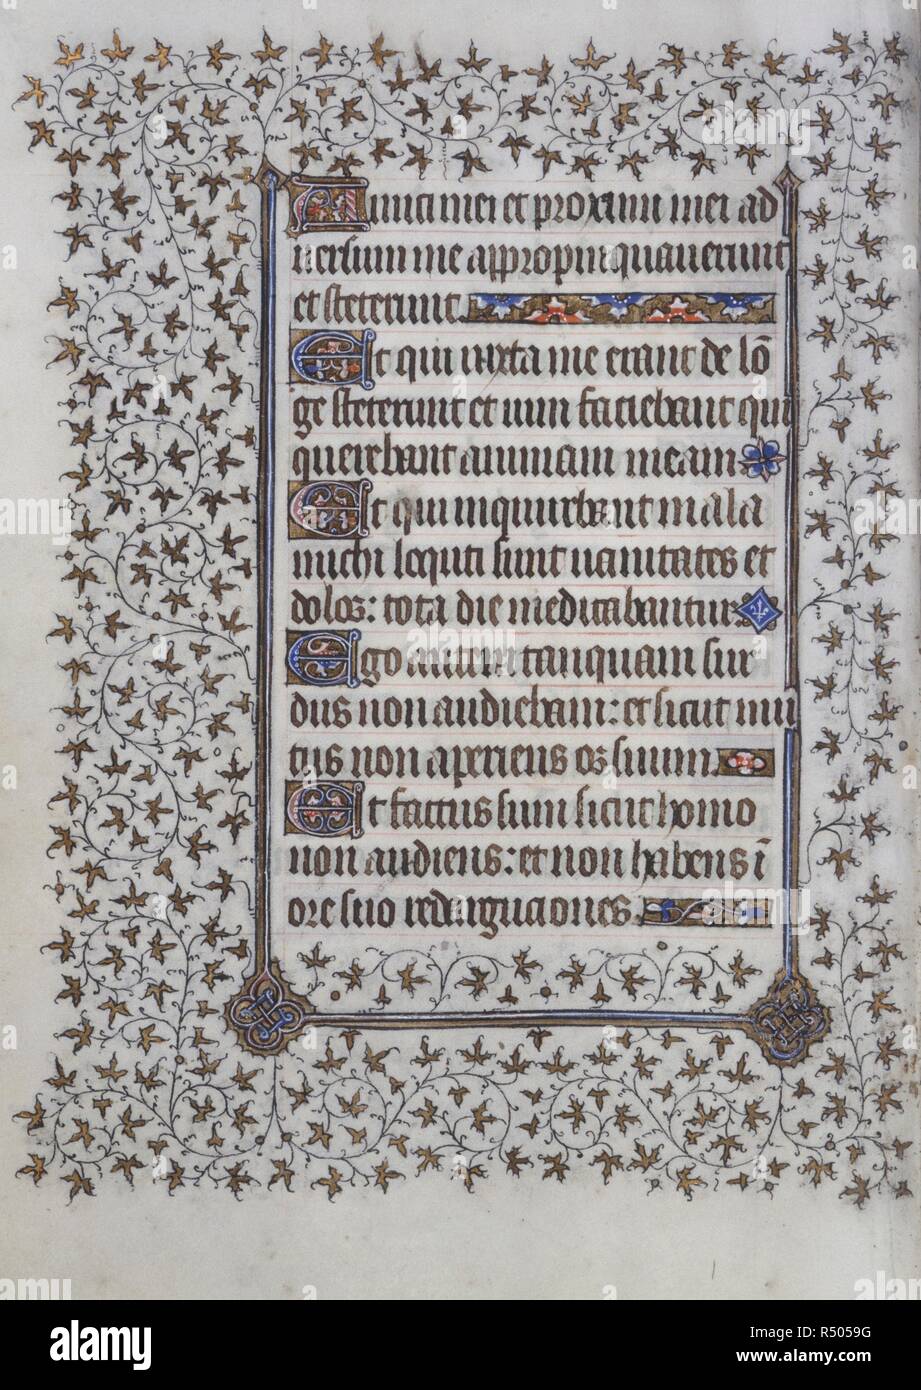 Amici mei et proximi mei ad
uersum me appropinquauerunt
et steterunt.
Et qui iuxta me erant de lō
ge steterunt et uim faciebant qui
querebant animam meam
Et qui inquirebant mala
michi locuti sunt uanitates et
dolos: tota die meditabantur
Ego autem tanquam sur
dus non audiebam: et sicut mu
tus non aperiens os suum.
Et factus sum sicut homo
non audiens: et non habens ī
ore suo redarguciones.
alamy
Image ID: R5059G
www.alamy.com